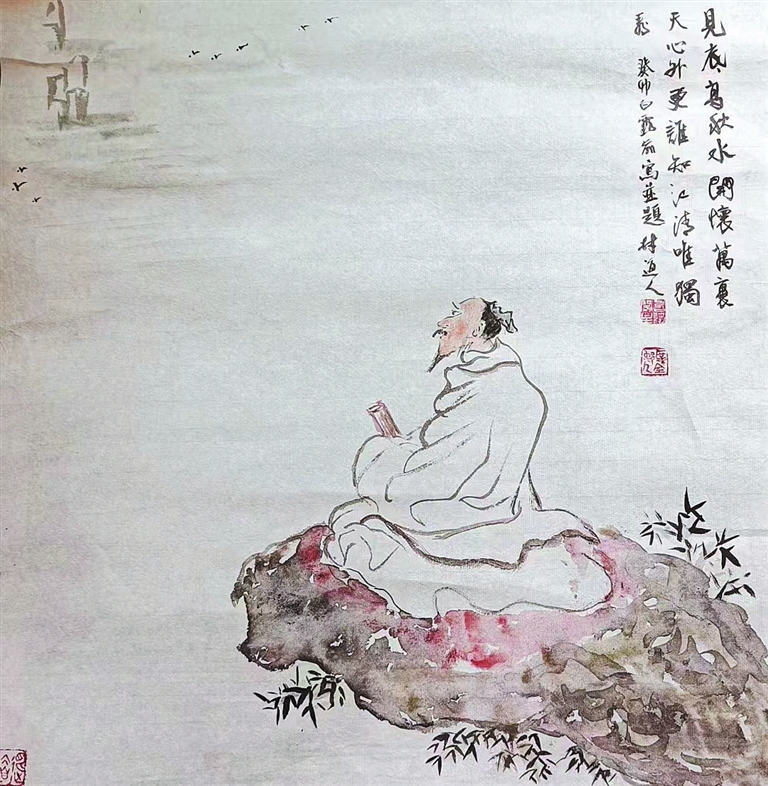 見底高秋水開懷萬裏
天心外更誰知江清唯獨
看 癸卯白龍前寫並題 道人